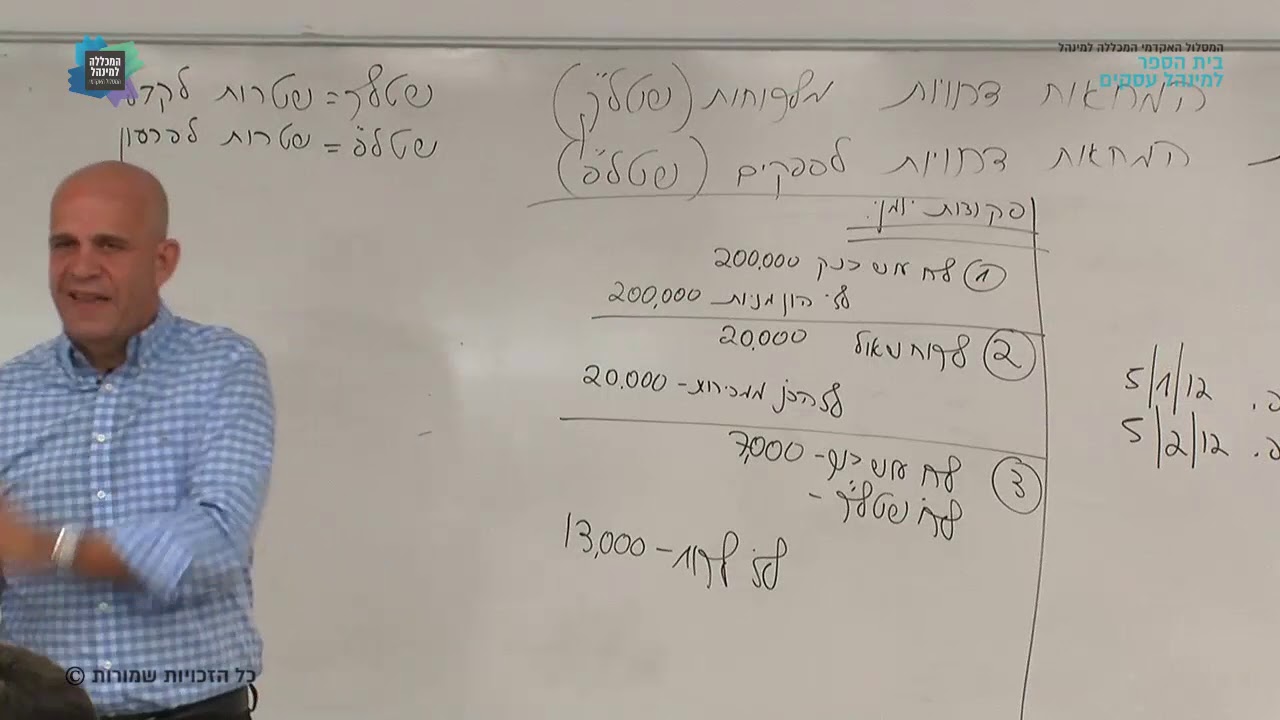 המסלול האקדמי המכללה למינהל
בית הספר
למינהל עסקים
המכללה
למינהל
המסלול האקדמי
המחאות דחויות מלקוחות (שטל"ק)
המחאות דחויות לספקים (שטל"פ)
שטל"ק = שטרות לקבל
שטל"פ = שטרות לפרעון
פקודות יומן:
1 לח' עוש בנק 200,000
לז' הון מניות 200,000
2 לקוח שאול 20,000
לז' הכנ' ממכירות - 20.000
3 לח' עוש בנק - 7,000
לח' שטל"ק -
לז' לקוח - 13,000
5/1/12
5/2/12
כל הזכויות שמורות ©